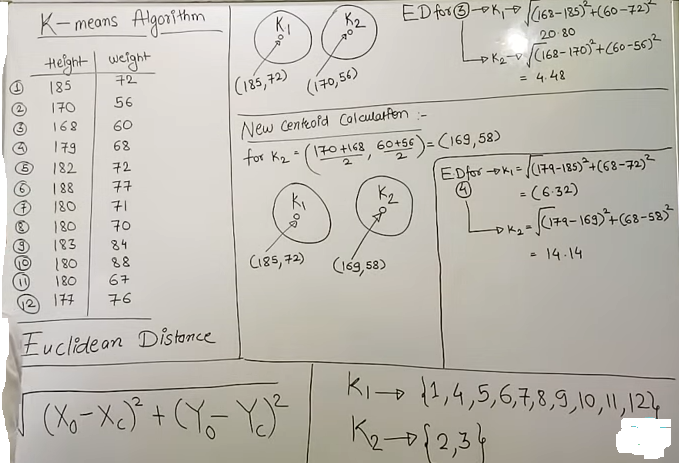 K-means Algorithm
Height weight
① 185 72
② 170 56
③ 168 60
④ 179 68
⑤ 182 72
⑥ 188 77
⑦ 180 71
⑧ 180 70
⑨ 183 84
⑩ 180 88
⑪ 180 67
⑫ 177 76
Euclidean Distance
√(X₀-X_c)² + (Y₀-Y_c)²
K₁ K₂
(185,72) (170,56)
ED for ③ → K₁ → √(168-185)²+(60-72)²
20.80
→ K₂ → √(168-170)²+(60-56)²
= 4.48
New Centroid Calculation :-
for K₂ = (170+168/2, 60+56/2) = (169,58)
K₁ K₂
(185,72) (169,58)
ED for → K₁ = √(179-185)²+(68-72)²
④ = (6.32)
→ K₂ = √(179-169)²+(68-58)²
= 14.14
K₁ → {1,4,5,6,7,8,9,10,11,12}
K₂ → {2,3}